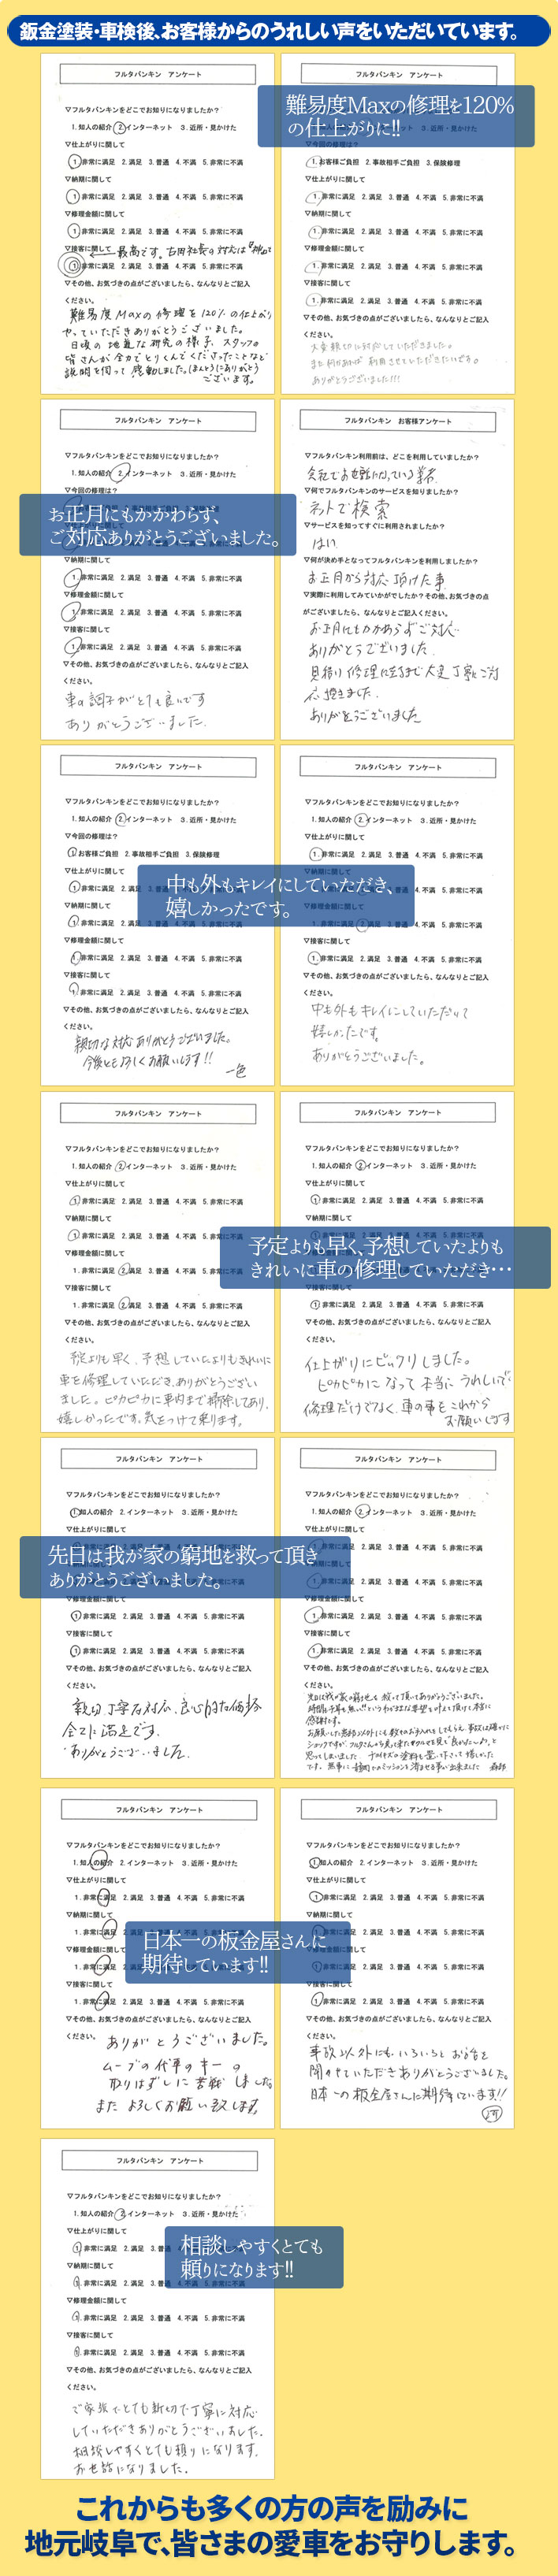 鈑金塗装・車検後、お客様からのうれしい声をいただいています。
フルタバンキン アンケート
▽フルタバンキンをどこでお知りになりましたか？
1. 知人の紹介 2. インターネット 3. 近所・見かけた
▽仕上がりに関して
1. 非常に満足 2. 満足 3. 普通 4. 不満 5. 非常に不満
▽納期に関して
1. 非常に満足 2. 満足 3. 普通 4. 不満 5. 非常に不満
▽修理金額に関して
1. 非常に満足 2. 満足 3. 普通 4. 不満 5. 非常に不満
▽接客に関して
最高です。古田社長の対応は
1. 非常に満足 2. 満足 3. 普通 4. 不満 5. 非常に不満
▽その他、お気づきの点がございましたら、なんなりとご記入
ください。
難易度Maxの修理を120%の仕上がり
やっていただきありがとうございました。
日頃の地道な研究の様子、スタッフの
皆さんが全力でとりくんでくださったことなど
説明を伺って感動しました。ほんとうにありがとう
ございます。
難易度Maxの修理を120%
の仕上がりに!!
1. お客様ご負担 2. 事故相手ご負担 3. 保険修理
▽仕上がりに関して
1. 非常に満足 2. 満足 3. 普通 4. 不満 5. 非常に不満
▽納期に関して
1. 非常に満足 2. 満足 3. 普通 4. 不満 5. 非常に不満
▽修理金額に関して
1. 非常に満足 2. 満足 3. 普通 4. 不満 5. 非常に不満
▽接客に関して
1. 非常に満足 2. 満足 3. 普通 4. 不満 5. 非常に不満
▽その他、お気づきの点がございましたら、なんなりとご記入
ください。
大変親切に対応していただきました。
また何かあれば利用させていただきたいです。
ありがとうございました!!!
フルタバンキン アンケート
▽フルタバンキンをどこでお知りになりましたか？
1. 知人の紹介 2. インターネット 3. 近所・見かけた
▽今回の修理は？
お正月にもかかわらず、
ご対応ありがとうございました。
▽納期に関して
1. 非常に満足 2. 満足 3. 普通 4. 不満 5. 非常に不満
▽修理金額に関して
1. 非常に満足 2. 満足 3. 普通 4. 不満 5. 非常に不満
▽接客に関して
1. 非常に満足 2. 満足 3. 普通 4. 不満 5. 非常に不満
▽その他、お気づきの点がございましたら、なんなりとご記入
ください。
車の調子がとても良いです
ありがとうございました。
フルタバンキン お客様アンケート
▽フルタバンキン利用前は、どこを利用していましたか？
会社でお世話になっている業者
▽何でフルタバンキンのサービスを知りましたか？
ネットで検索
▽サービスを知ってすぐに利用されましたか？
はい
▽何が決め手となってフルタバンキンを利用しましたか？
お正月から対応頂けた事
▽実際に利用してみていかがでしたか？その他、お気づきの点
がございましたら、なんなりとご記入ください。
お正月にもかかわらずご対応
ありがとうございました
見積り修理に至るまで大変丁寧にご対
応頂きました。
ありがとうございました
フルタバンキン アンケート
▽フルタバンキンをどこでお知りになりましたか？
1. 知人の紹介 2. インターネット 3. 近所・見かけた
▽今回の修理は？
1. お客様ご負担 2. 事故相手ご負担 3. 保険修理
▽仕上がりに関して
1. 非常に満足
▽納期に関して
1. 非常に満足 2. 満足 3. 普通 4. 不満 5. 非常に不満
▽修理金額に関して
1. 非常に満足 2. 満足 3. 普通 4. 不満 5. 非常に不満
▽接客に関して
1. 非常に満足 2. 満足 3. 普通 4. 不満 5. 非常に不満
▽その他、お気づきの点がございましたら、なんなりとご記入
ください。
親切な対応ありがとうございました。
今後とも宜しくお願いします!!
一色
中も外もキレイにしていただき、
嬉しかったです。
フルタバンキン アンケート
▽フルタバンキンをどこでお知りになりましたか？
1. 知人の紹介 2. インターネット 3. 近所・見かけた
▽仕上がりに関して
1. 非常に満足 2. 満足 3. 普通 4. 不満 5. 非常に不満
▽修理金額に関して
1. 非常に満足 2. 満足 3. 普通 4. 不満 5. 非常に不満
▽接客に関して
1. 非常に満足 2. 満足 3. 普通 4. 不満 5. 非常に不満
▽その他、お気づきの点がございましたら、なんなりとご記入
ください。
中も外もキレイにしていただいて
嬉しかったです。
ありがとうございました。
フルタバンキン アンケート
▽フルタバンキンをどこでお知りになりましたか？
1. 知人の紹介 2. インターネット 3. 近所・見かけた
▽仕上がりに関して
1. 非常に満足 2. 満足 3. 普通 4. 不満 5. 非常に不満
▽納期に関して
1. 非常に満足 2. 満足 3. 普通 4. 不満
▽修理金額に関して
1. 非常に満足 2. 満足 3. 普通 4. 不満
▽接客に関して
1. 非常に満足 2. 満足 3. 普通 4. 不満 5. 非常に不満
▽その他、お気づきの点がございましたら、なんなりとご記入
ください。
予定よりも早く、予想していたよりもきれいに
車を修理していただき、ありがとうござい
ました。ピカピカに車内まで掃除してあり、
嬉しかったです。気をつけて乗ります。
フルタバンキン アンケート
▽フルタバンキンをどこでお知りになりましたか？
1. 知人の紹介 2. インターネット 3. 近所・見かけた
▽仕上がりに関して
1. 非常に満足 2. 満足 3. 普通 4. 不満 5. 非常に不満
▽納期に関して
予定よりも早く、予想していたよりも
きれいに車の修理していただき…
1. 非常に満足 2. 満足 3. 普通 4. 不満 5. 非常に不満
▽その他、お気づきの点がございましたら、なんなりとご記入
ください。
仕上がりにビックリしました。
ピカピカになって本当にうれしいです
修理だけでなく、車の事をこれから
お願いします
フルタバンキン アンケート
▽フルタバンキンをどこでお知りになりましたか？
1. 知人の紹介 2. インターネット 3. 近所・見かけた
▽仕上がりに関して
先日は我が家の窮地を救って頂き
ありがとうございました。
▽修理金額に関して
1. 非常に満足 2. 満足 3. 普通 4. 不満 5. 非常に不満
▽接客に関して
1. 非常に満足 2. 満足 3. 普通 4. 不満 5. 非常に不満
▽その他、お気づきの点がございましたら、なんなりとご記入
ください。
親切丁寧な対応、良心的な価格
全てに満足です。
ありがとうございました。
フルタバンキン アンケート
▽フルタバンキンをどこでお知りになりましたか？
1. 知人の紹介 2. インターネット 3. 近所・見かけた
▽仕上がりに関して
▽修理金額に関して
1. 非常に満足 2. 満足 3. 普通 4. 不満 5. 非常に不満
▽接客に関して
1. 非常に満足 2. 満足 3. 普通 4. 不満 5. 非常に不満
▽その他、お気づきの点がございましたら、なんなりとご記入
ください。
先日は我が家の窮地を救って頂いてありがとうございました。
フルタバンキン アンケート
▽フルタバンキンをどこでお知りになりましたか？
1. 知人の紹介 2. インターネット 3. 近所・見かけた
▽仕上がりに関して
1. 非常に満足 2. 満足 3. 普通 4. 不満 5. 非常に不満
▽納期に関して
1. 非常に満足
▽修理金額に関して
1. 非常に満足
▽接客に関して
1. 非常に満足 2. 満足 3. 普通 4. 不満 5. 非常に不満
▽その他、お気づきの点がございましたら、なんなりとご記入
ください。
ありがとうございました。
ムーブの代車のキーの
取りはずしに苦戦しました。
またよろしくお願い致します。
日本一の板金屋さんに
期待しています!!
フルタバンキン アンケート
▽フルタバンキンをどこでお知りになりましたか？
1. 知人の紹介 2. インターネット 3. 近所・見かけた
▽仕上がりに関して
1. 非常に満足 2. 満足 3. 普通 4. 不満 5. 非常に不満
▽納期に関して
▽接客に関して
1. 非常に満足 2. 満足 3. 普通 4. 不満 5. 非常に不満
▽その他、お気づきの点がございましたら、なんなりとご記入
ください。
事故以外にも、いろいろとお話を
聞かせていただきありがとうございました。
日本一の板金屋さんに期待しています!!
フルタバンキン アンケート
▽フルタバンキンをどこでお知りになりましたか？
1. 知人の紹介 2. インターネット 3. 近所・見かけた
▽仕上がりに関して
1. 非常に満足 2. 満足
▽納期に関して
1. 非常に満足 2. 満足 3. 普通 4. 不満 5. 非常に不満
▽修理金額に関して
1. 非常に満足 2. 満足 3. 普通 4. 不満 5. 非常に不満
▽接客に関して
1. 非常に満足 2. 満足 3. 普通 4. 不満 5. 非常に不満
▽その他、お気づきの点がございましたら、なんなりとご記入
ください。
相談しやすくとても
頼りになります!!
ご家族でとても親切で丁寧に対応
していただきありがとうございました。
相談しやすくとても頼りになります。
お世話になりました。
これからも多くの方の声を励みに
地元岐阜で、皆さまの愛車をお守りします。